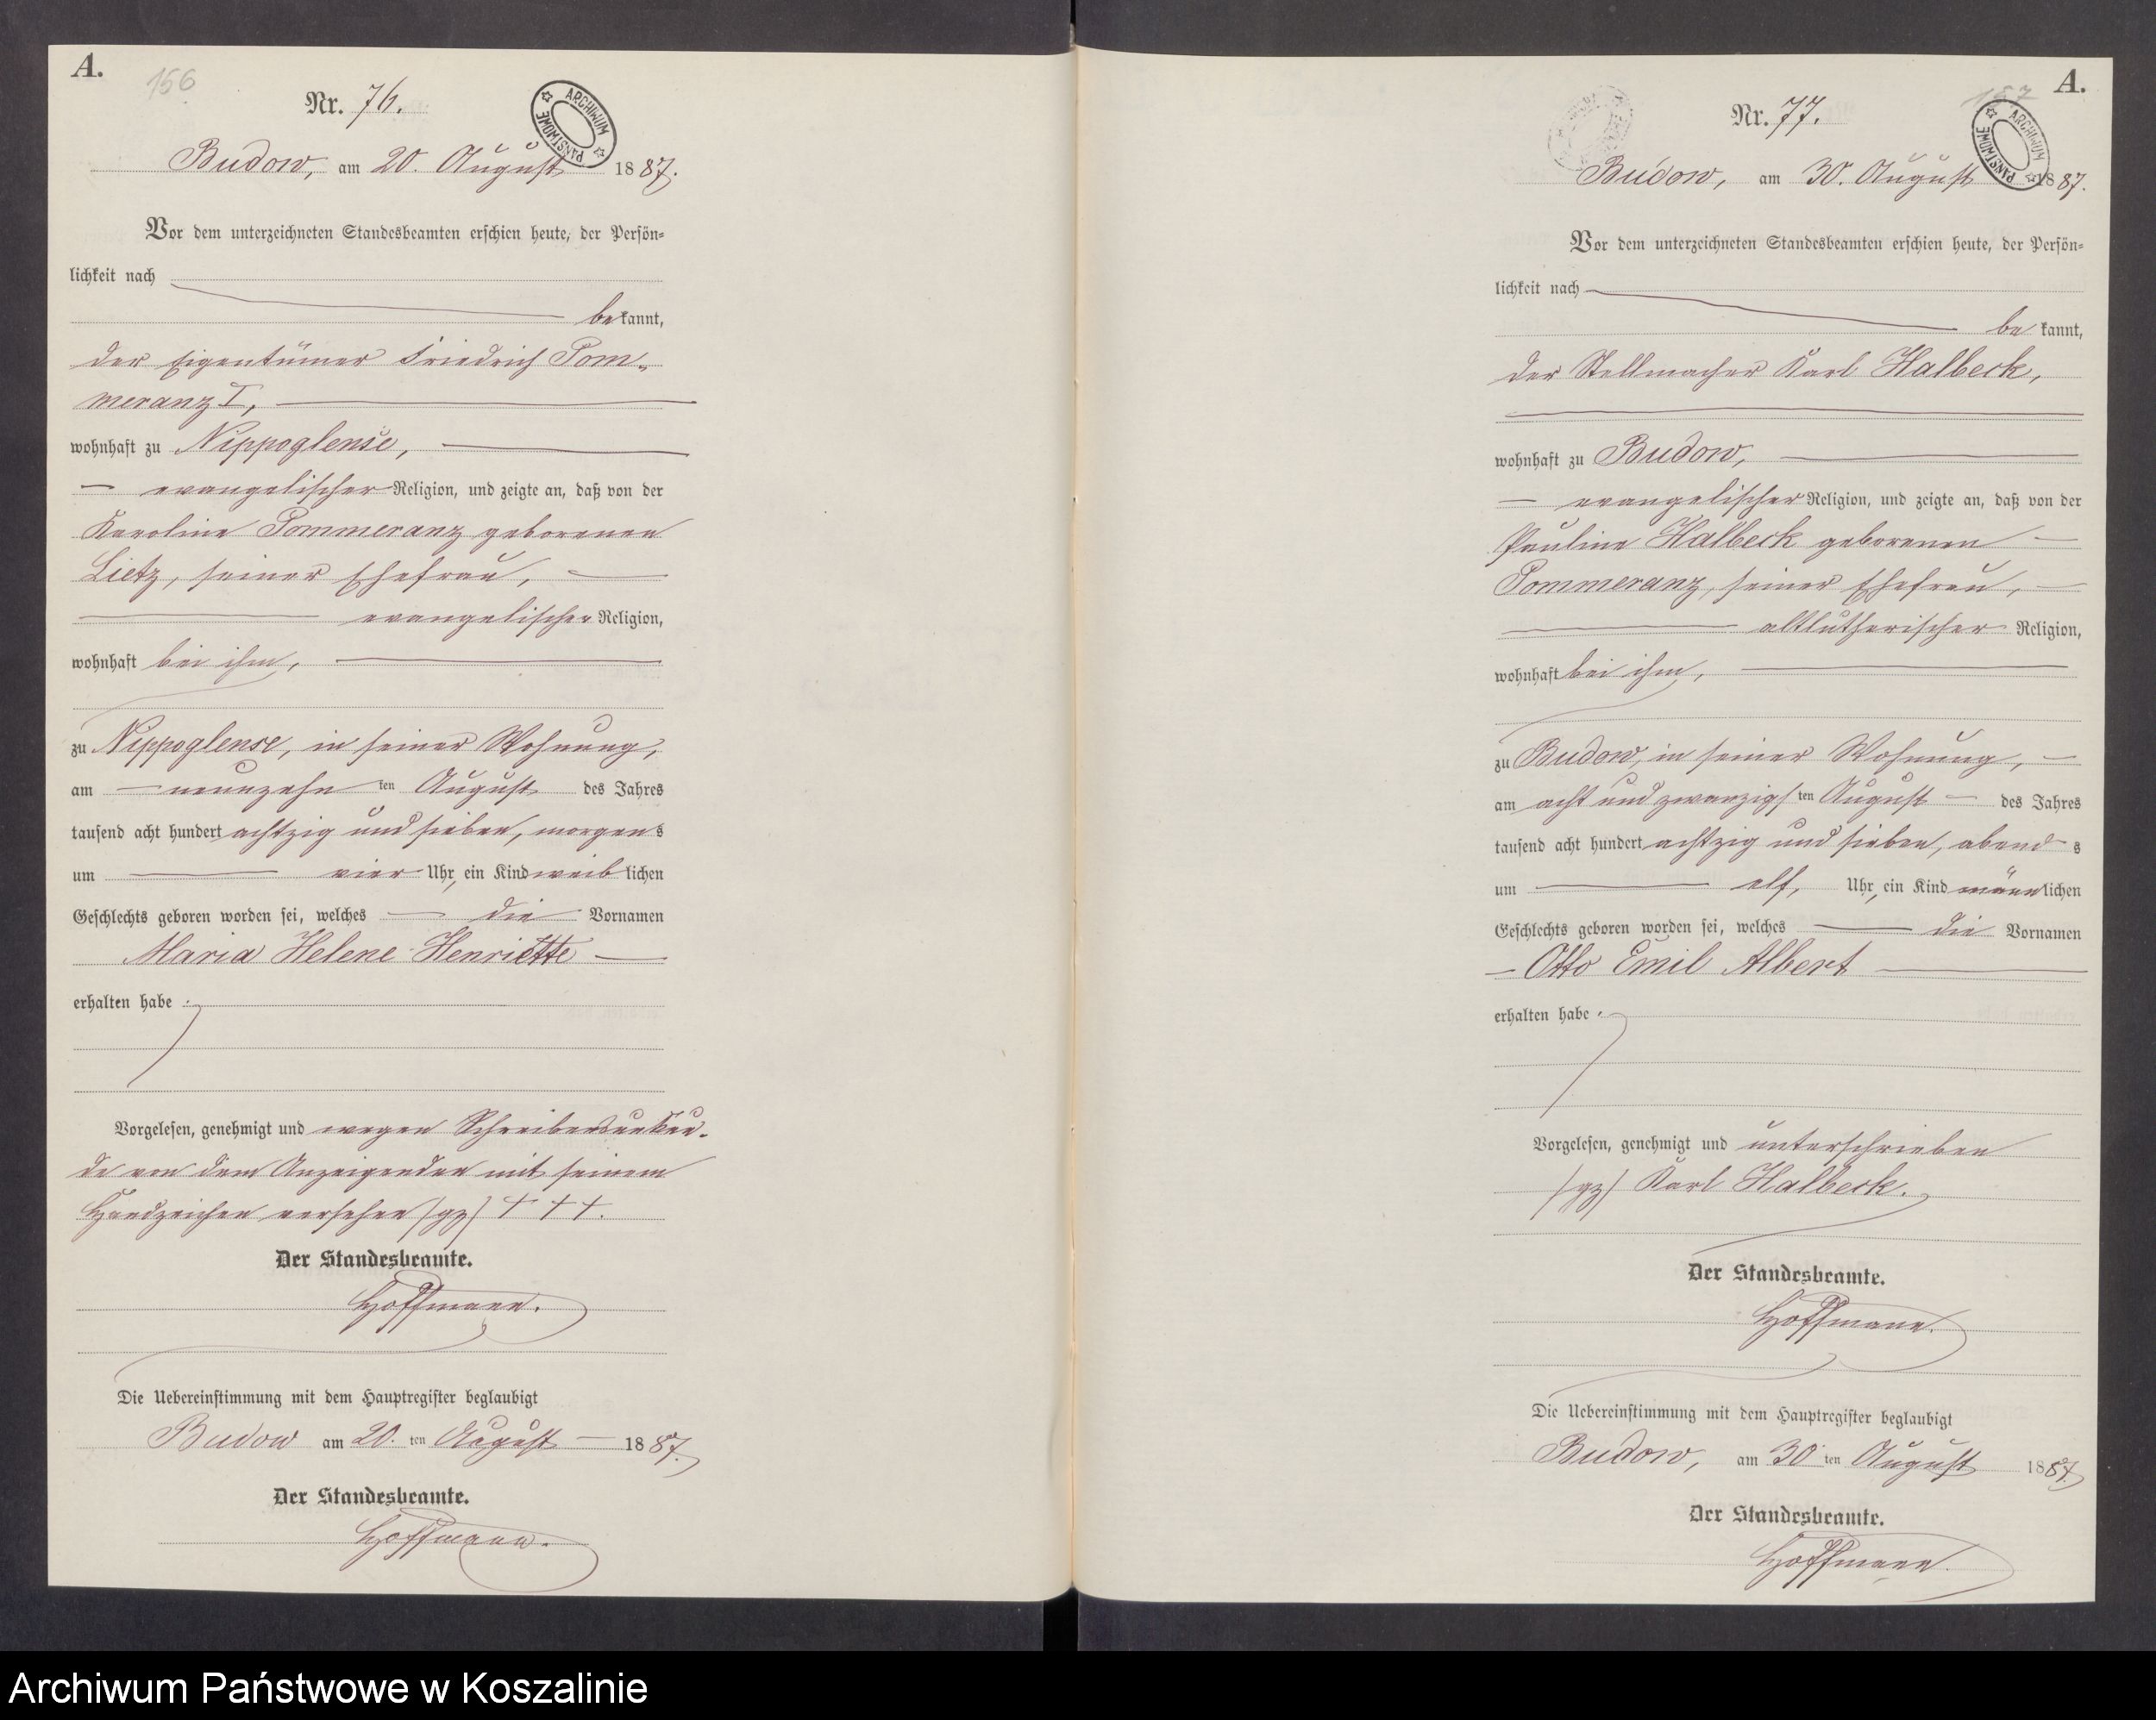 A.
156
Nr. 76.
ARCHIWUM PAŃSTWOWE
Budow, am 20. August 1887.
Vor dem unterzeichneten Standesbeamten erschien heute, der Persön=
lichkeit nach
bekannt,
der Eigentümer Friedrich Pom-
meranz I,
wohnhaft zu Nippoglense,
evangelischer Religion, und zeigte an, daß von der
Karoline Pommeranz geborenen
Lietz, seiner Ehefrau,
evangelischer Religion,
wohnhaft bei ihm,
zu Nippoglense, in seiner Wohnung,
am neunzehn ten August des Jahres
tausend acht hundert achtzig und sieben, morgens
um vier Uhr, ein Kind weiblichen
Geschlechts geboren worden sei, welches die Vornamen
Maria Helene Henriette
erhalten habe.
Vorgelesen, genehmigt und wegen Schreibensunkun-
de von dem Anzeigenden mit seinem
Handzeichen versehen (gz) + + +.
Der Standesbeamte.
Hoffmann.
Die Uebereinstimmung mit dem Hauptregister beglaubigt
Budow am 20. ten August 1887.
Der Standesbeamte.
Hoffmann.
A.
157
Nr. 77.
ARCHIWUM PAŃSTWOWE
Budow, am 30. August 1887.
Vor dem unterzeichneten Standesbeamten erschien heute, der Persön=
lichkeit nach
bekannt,
der Stellmacher Karl Halbeck,
wohnhaft zu Budow,
evangelischer Religion, und zeigte an, daß von der
Pauline Halbeck geborenen
Pommeranz, seiner Ehefrau,
altlutherischer Religion,
wohnhaft bei ihm,
zu Budow, in seiner Wohnung,
am acht und zwanzigsten August des Jahres
tausend acht hundert achtzig und sieben, abends
um elf, Uhr, ein Kind männlichen
Geschlechts geboren worden sei, welches die Vornamen
Otto Emil Albert
erhalten habe.
Vorgelesen, genehmigt und unterschrieben
(gz) Karl Halbeck.
Der Standesbeamte.
Hoffmann.
Die Uebereinstimmung mit dem Hauptregister beglaubigt
Budow, am 30 ten August 1887.
Der Standesbeamte.
Hoffmann.
Archiwum Państwowe w Koszalinie